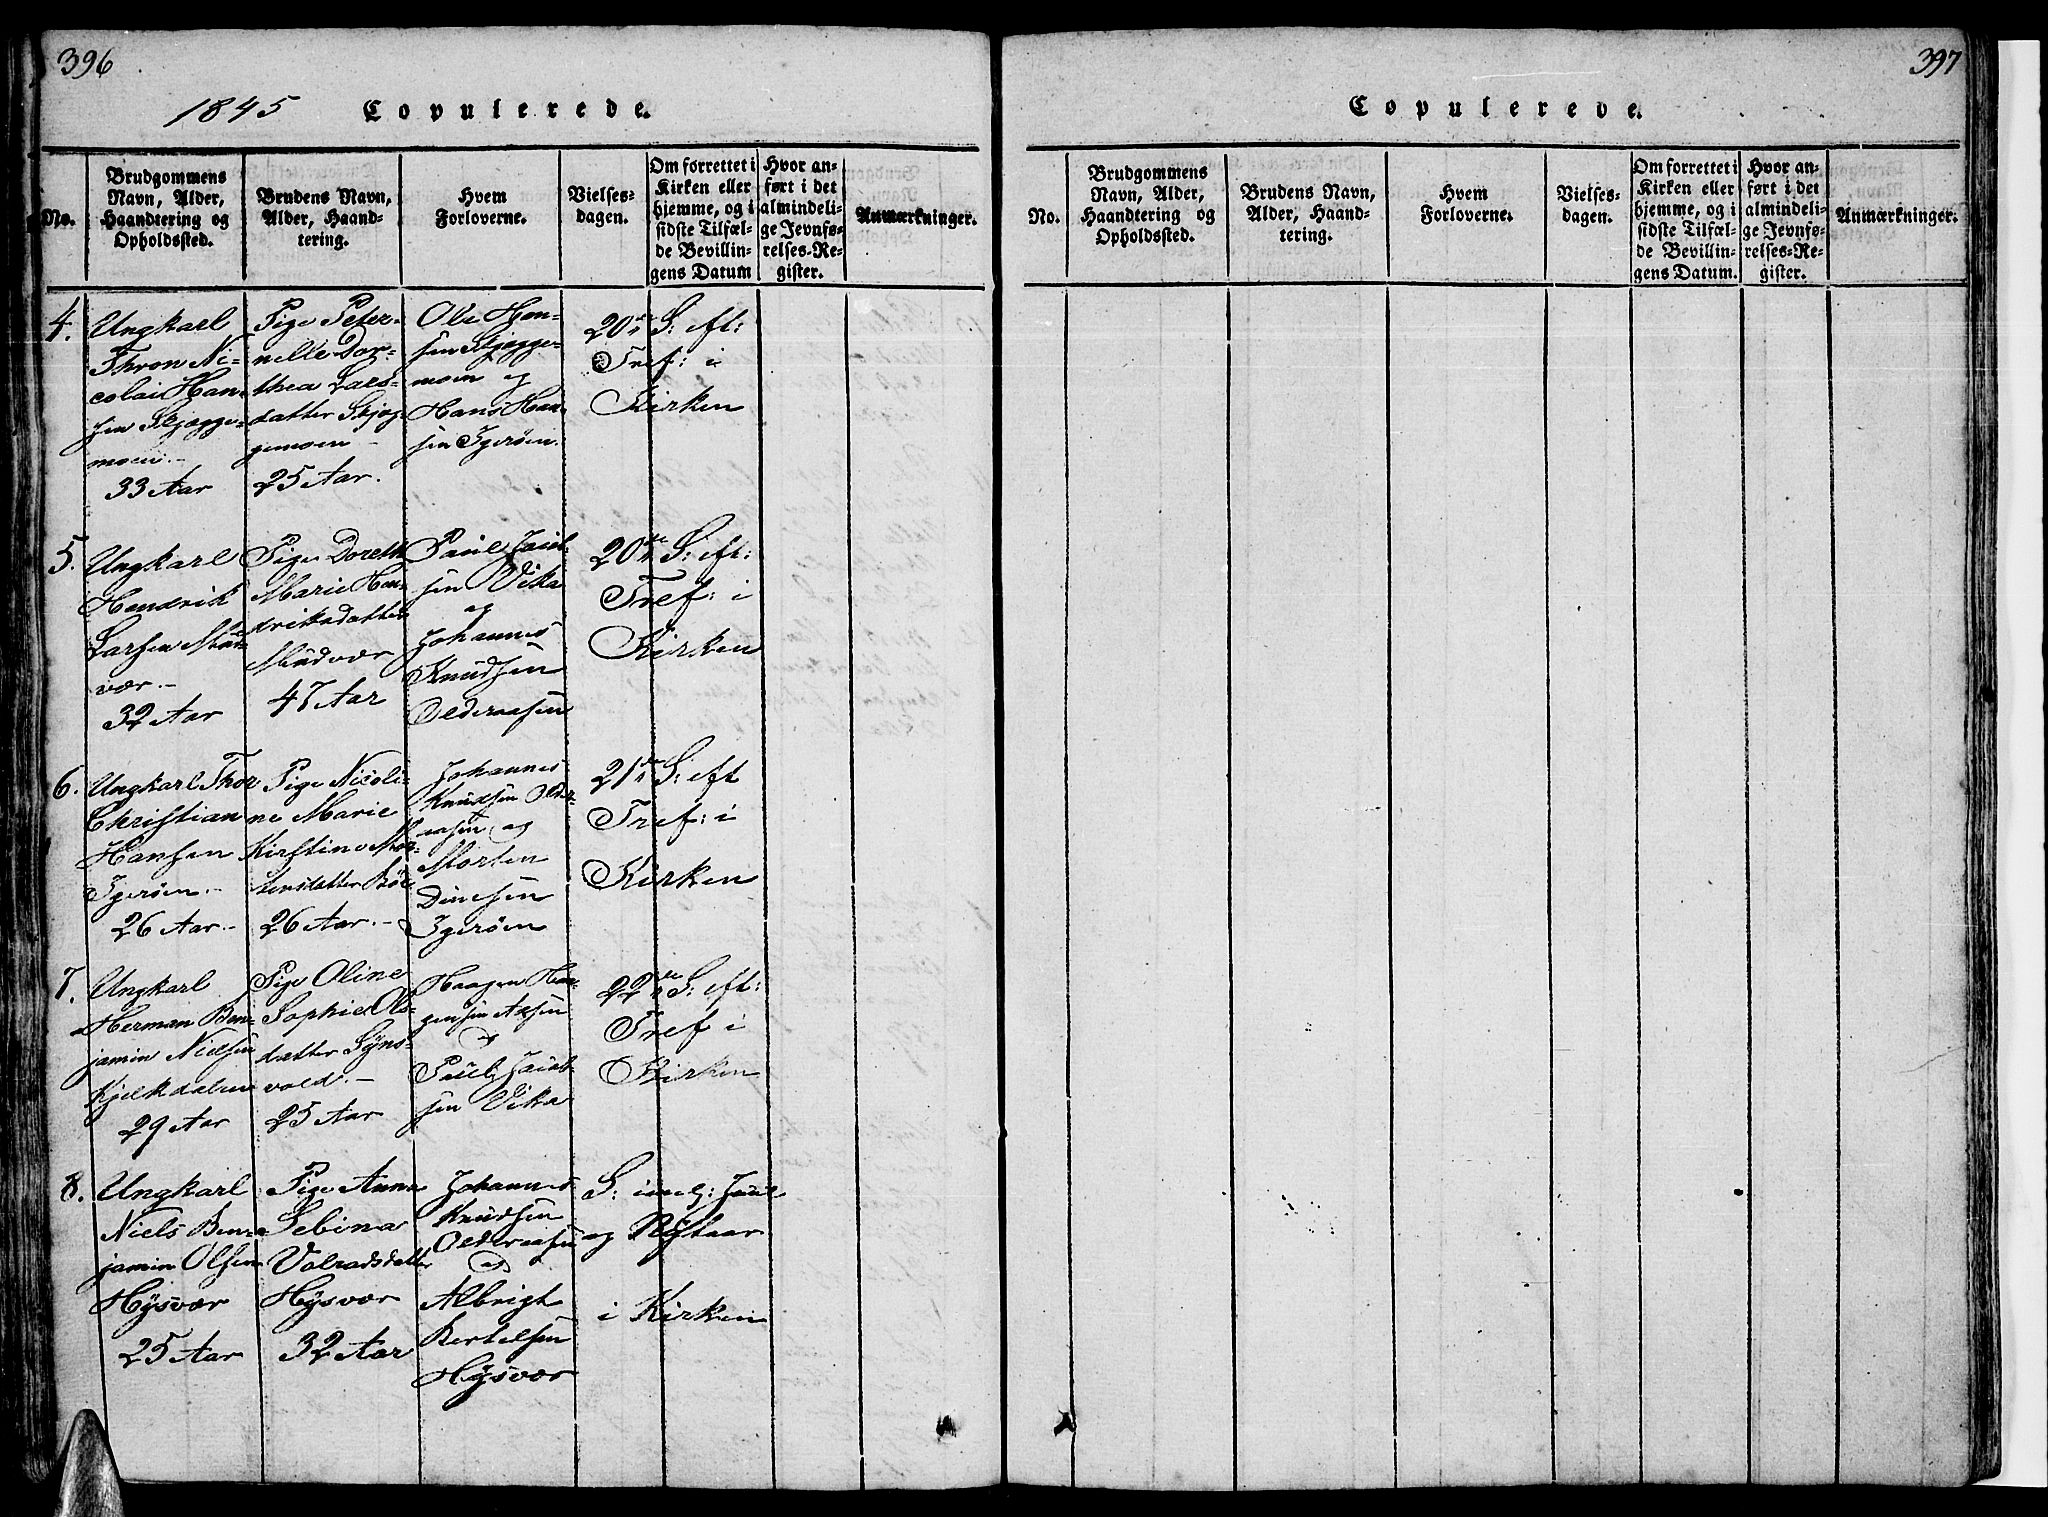 396
1845 Copulerede.
No.
Brudgommens
Navn, Alder,
Haandtering og
Opholdssted.
Brudens Navn,
Alder, Haand-
tering.
Hvem
Forloverne.
Vielses-
dagen.
Om forrettet i
Kirken eller
hjemme, og i
sidste Tilfæl-
de Bevillin-
gens Datum
Hvor an-
ført i det
almindeli-
ge Jevnfø-
relses-Re-
gister.
Anmærkninger.
4.
Ungkarl
Thron Ni-
colai Han-
sen Skjegge-
moen.-
33 Aar
Pige Peter-
nelle Dor-
thea Lars-
datter Skjeg-
gemoen -
25 Aar.
Ole Han-
sen Skjegge-
moen og
Hans Han-
sen Igerøen.
20de S: eft:
Tref: i
Kirken
5.
Ungkarl
Hendrik
Larsen Mud-
vær.-
32 Aar
Pige Doreth
Marie Hen-
driksdatter
Mudvær
47 Aar
Paul Jacob-
sen Vika
og
Johannes
Knudsen
Olderaasen
20de S: eft:
Tref: i
Kirken
6.
Ungkarl Thor
Christian
Hansen
Igerøen.-
26 Aar.-
Pige Nicoli-
ne Marie
Kirstine Mor-
tensdatter
26 Aar.-
Johannes
Knudsen Older-
aasen og
Morten
Dinesen
Igerøen
21de S: eft
Tref: i
Kirken
7.
Ungkarl
Herman Ben-
jamin Nielsen
Kjelkdalen
29 Aar
Pige Oline
Sophie Ols-
datter Syns-
vold.-
25 Aar
Haagen Haa-
gensen
og
Paul Jacob-
sen Vika
22de S: eft:
Tref i
Kirken
8.
Ungkarl
Niels Ben-
jamin Olsen
Hysvær
25 Aar
Pige Anna
Sebina
Volradsdatter
Hysvær
32 Aar
Johannes
Knudsen
Olderaasen
og
Albrigt
Bertelsen
Hysvær
S: imel: Juul
og Nytaar
i Kirken
397
Copulerede.
No.
Brudgommens
Navn, Alder,
Haandtering og
Opholdssted.
Brudens Navn,
Alder, Haand-
tering.
Hvem
Forloverne.
Vielses-
dagen.
Om forrettet i
Kirken eller
hjemme, og i
sidste Tilfæl-
de Bevillin-
gens Datum.
Hvor an-
ført i det
almindeli-
ge Jevnfø-
relses-Re-
gister.
Anmærkninger.